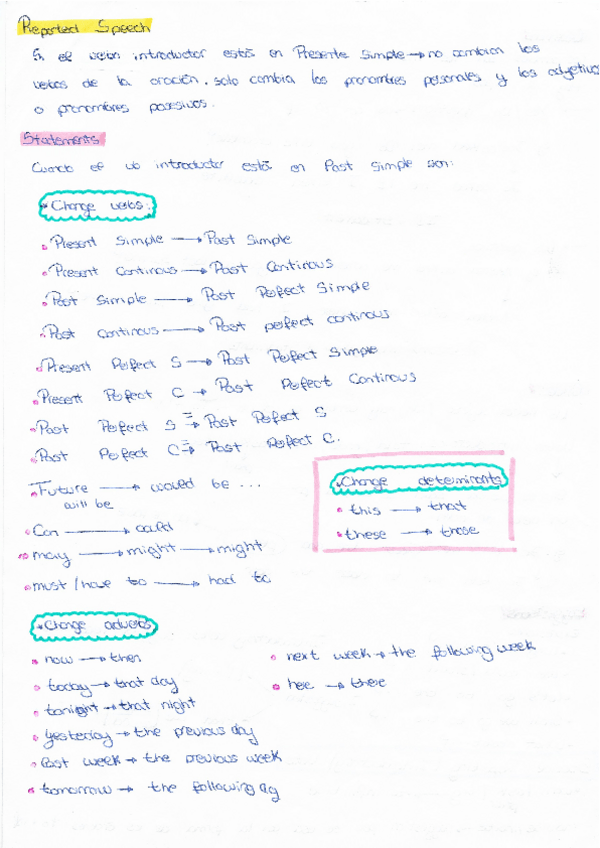 Reported Speech
Si el verbo introductor está en Presente Simple → no cambian los
verbos de la oración. solo cambia los pronombres personales y los adjetivos
o pronombres posesivos.
Statements
Cuando el vb introductor está en Past Simple son:
* Change verbs:
Present Simple → Past Simple
Present Continous → Past Continous
Past Simple → Past Perfect Simple
Past Continous → Past perfect continous
Present Perfect S → Past Perfect Simple
Present Perfect C → Past Perfect Continous
Past Perfect S = → Past Perfect S
Past Perfect C = → Past Perfect C.
Future → would be ...
will be
Can → could
may → might → might
must / have to → had to
* Change determinants
this → that
these → those
* Change adverbs
now → then
today → that day
tonight → that night
yesterday → the previous day
Past week → the previous week
tomorrow → the following day
next week → the following week
here → there